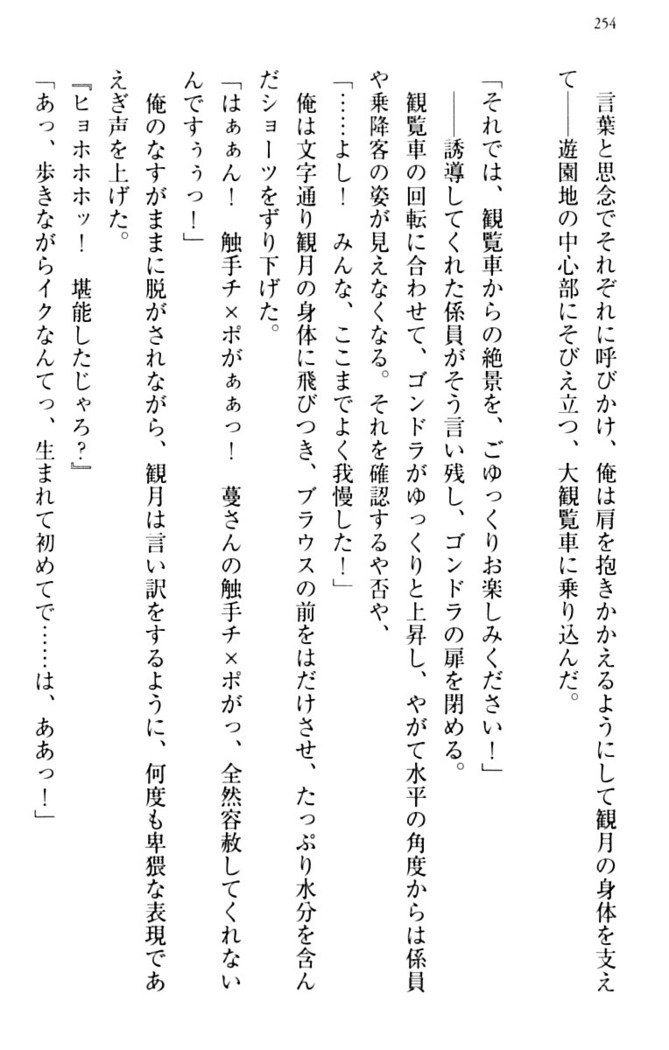 254
言葉と思念でそれぞれに呼びかけ、俺は肩を抱きかかえるようにして観月の身体を支え
て――遊園地の中心部にそびえ立つ、大観覧車に乗り込んだ。
「それでは、観覧車からの絶景を、ごゆっくりお楽しみください！」
――誘導してくれた係員がそう言い残し、ゴンドラの扉を閉める。
観覧車の回転に合わせて、ゴンドラがゆっくりと上昇し、やがて水平の角度からは係員
や乗降客の姿が見えなくなる。それを確認するや否や、
「……よし！　みんな、ここまでよく我慢した！」
俺は文字通り観月の身体に飛びつき、ブラウスの前をはだけさせ、たっぷり水分を含ん
だショーツをずり下げた。
「はぁぁん！　触手チ×ポがぁぁっ！　蔓さんの触手チ×ポがっ、全然容赦してくれない
んですぅぅっ！」
俺のなすがままに脱がされながら、観月は言い訳をするように、何度も卑猥な表現であ
えぎ声を上げた。
『ヒョホホホッ！　堪能したじゃろ？』
「あっ、歩きながらイクなんてっ、生まれて初めてで……は、ああっ！」